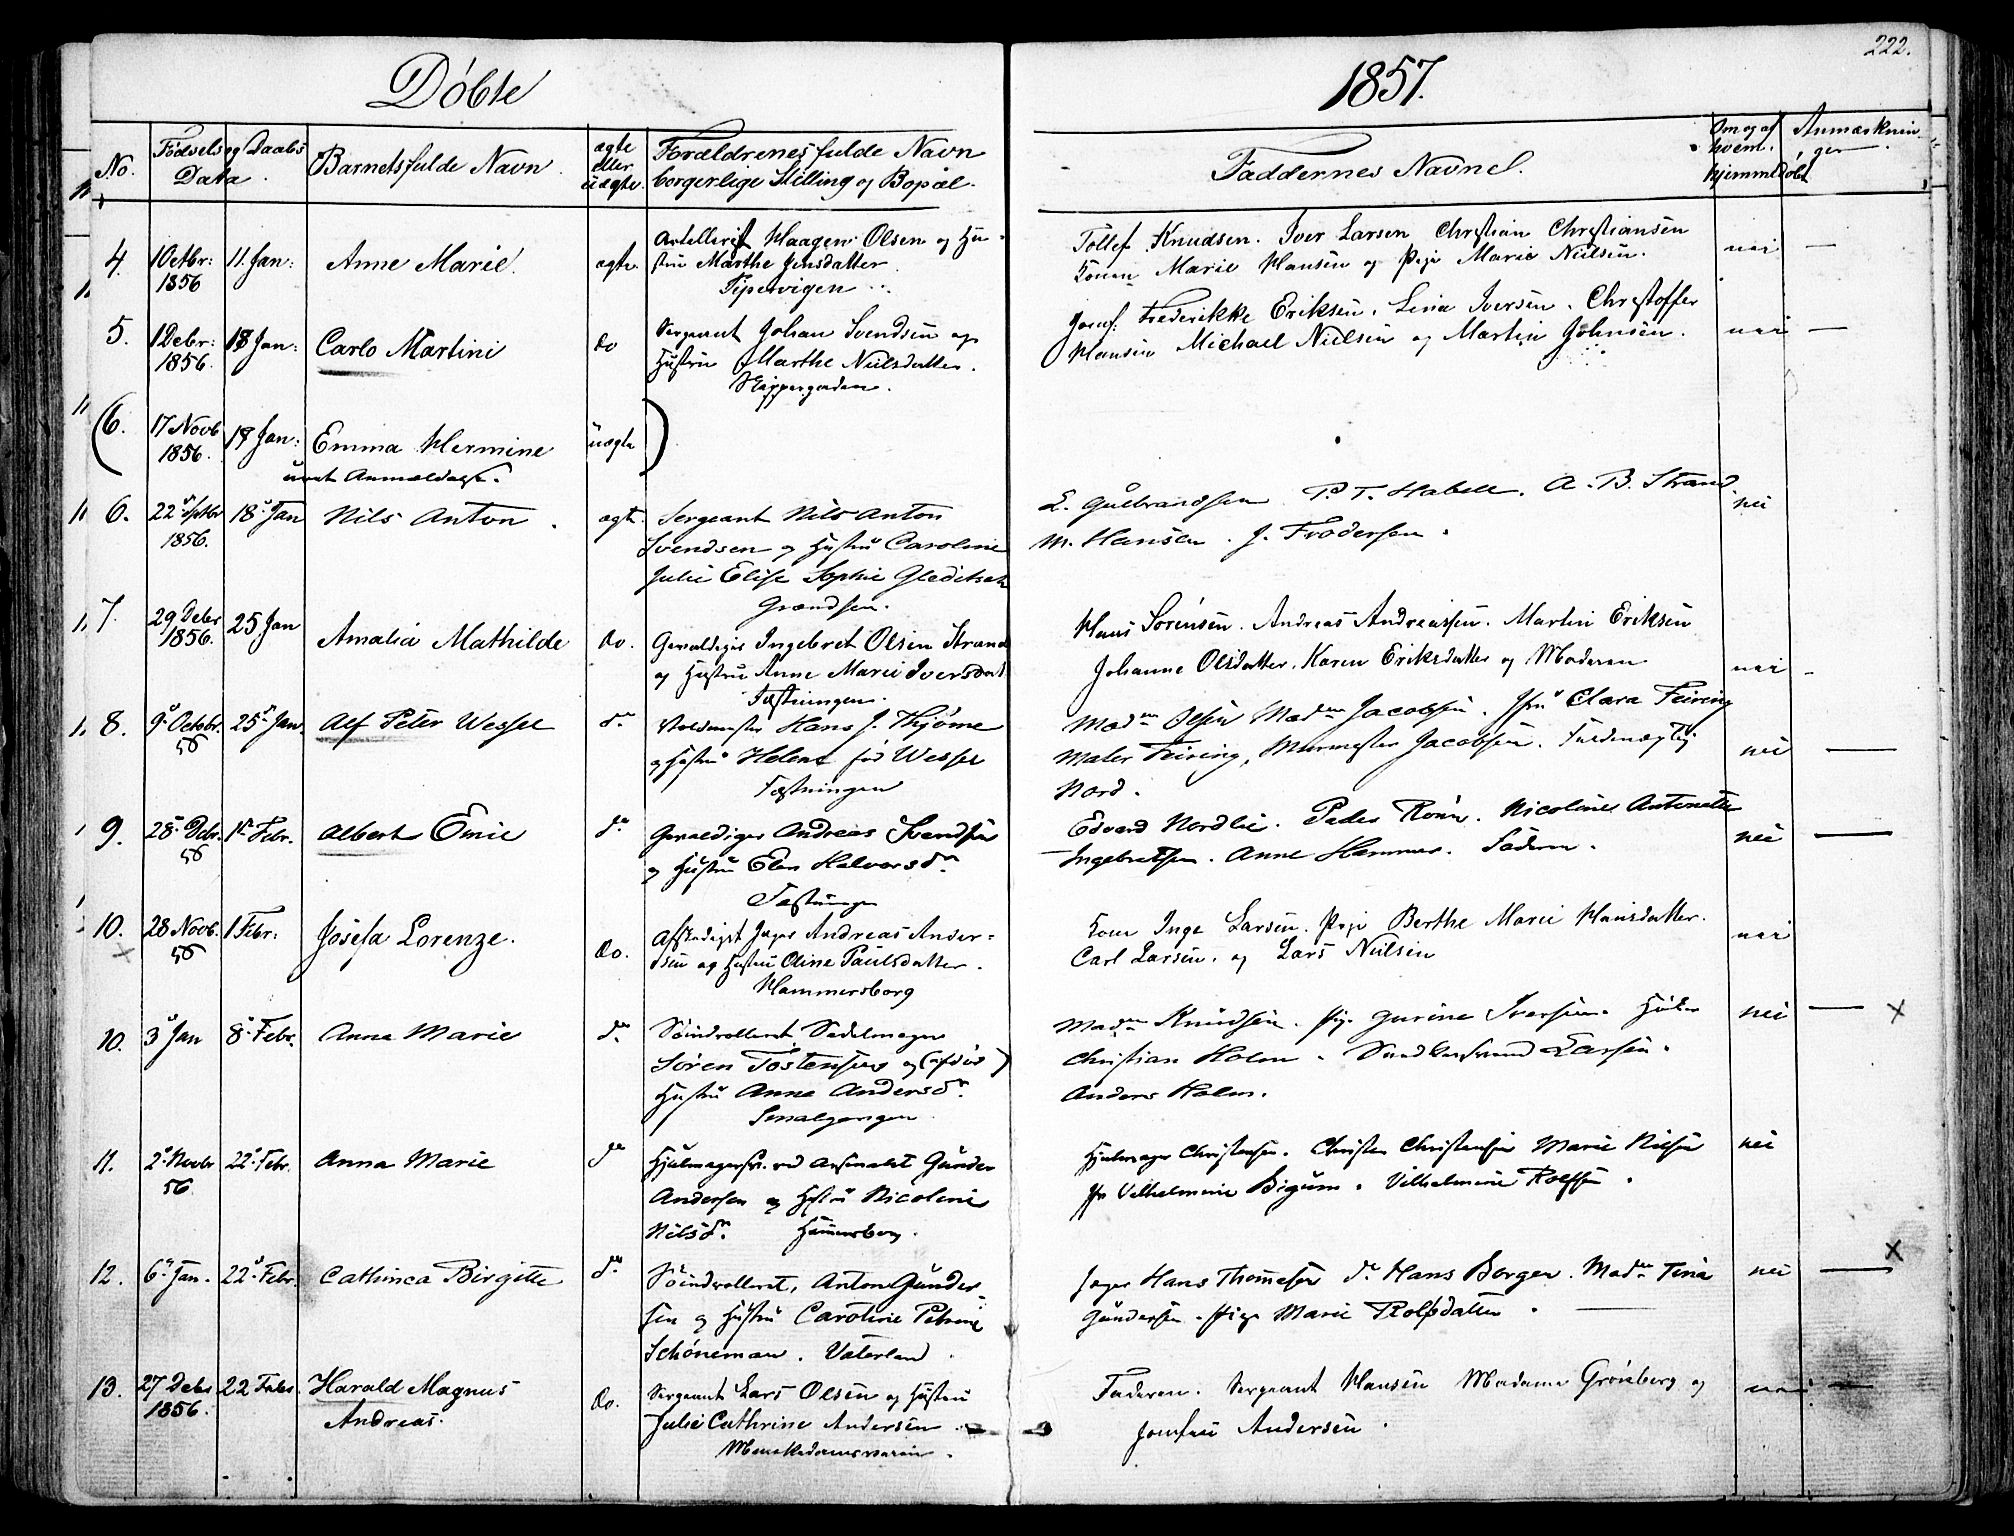 222.
Döbte 1857.
No. Födsels og Daabs Data. Barnets fulde Navn. ægte eller uægte. Forældrenes fulde Navn borgerlige Stilling og Bopæl. Faddernes Navne. Om og af hvem hjemmedöbt Anmærkninger.
4. 1 Octbr: 1856 11. Jan: Anne Marie. ægte.
Artellerist Haagen Olsen og Hu-
stru Marthe Jensdatter
Pipervigen
Tollef Knudsen. Iver Larsen Christian Christiansen
Konen Marie Hansen og Pige Marie Nielsen. nei —
5. 1 Debr: 1856. 18 Jan: Carlo Martini do
Sergeant Johan Svendsen og
Hustru Marthe Nielsdatter.
Skippergaden.
Jomf: Frederikke Eriksen, Lina Iversen. Christoffer
Hansen Michael Nielsen og Martin Johnsen. nei —
(6. 17 Novb 1856. 18 Jan: Emma Hermine uægte )
uret Anmeldelse.
6. 22 Septbr 1856. 18 Jan Nils Anton. ægte.
Sergeant Nils Anton
Svendsen og Hustru Caroline
Julie Elise Sophie Gleditsch
Grændsen.
L. Gulbrandsen P. T. Habell. A. B. Strand
M. Hansen. J. Frodersen. nei
7. 29 Debr 1856. 25 Jan Amalia Mathilde do.
Gevaldiger Ingebret Olsen Strand
og Hustru Anne Marie Iversdat
Fæstningen.
Hans Sörensen. Andreas Andreassen. Martin Eriksen
Johanne Olsdatter. Karen Eriksdatter og Moderen nei
8. 9 Octobr. 56 25 Jan. Alf Peter Wessel do
Voldmester Hans J. Thjöme
og Hustru Helene föd Wessel
Fæstningen
Madm Olsen Madm Jacobsen. Jfru Clara Feiring
Maler Feiring, Murmester Jacobsen. Fuldmægtig
Nord. nei —
9. 28 Debr. 56 1 Febr. Albert Emil do
Gevaldiger Andreas Svendsen
og Hustru Elen Halvorsdr
Fæstningen
Edvard Nordlie. Peder Rönn. Nicoline Antonette
Ingebretsen. Anne Hammer. Faderen. nei —
10. 28 Novb. 56 1 Febr: Josefa Lorenze. do.
Afskediget Jæger Andreas Ander-
sen og Hustru Oline Paulsdatter.
Hammersborg
Kone Inge Larsen. Pige Berthe Marie Hansdatter.
Carl Larsen. og Lars Nielsen nei
10. 3 Jan 8 Febr. Anna Marie do
Söindrolleret Sadelmager
Sören Tostensen og (afdöd)
Hustru Anne Andersdr.
Smalgangen
Madm Knudsen. Pige Gurine Iversen.
Christian Holm. Larsen.
Anders Holm. nei —
11. 2 Novbr 56 22 Febr. Anna Marie do
Hjulmagersv. ved Arsenalet Gunder
Andersen og Hustru Nicoline
Nilsdr. Hammersborg.
Hjulmager Christensen. Christen Christensen Marie Nilsen
Jfr Vilhelmine Bigum. Vilhelmine Rolfsen. nei
12. 6 Jan. 22 Febr. Cathinca Birgitte do
Söindrolleret, Anton Gunder-
sen og Hustru Caroline Petrine
Schöneman. Vaterland.
Jæger Hans Thomesen do Hans Borger. Madm Tina
Gundersen. Pige Marie Rolfsdatter. nei —
13. 27 Debr 1856. 22 Febr. Harald Magnus Andreas. do.
Sergeant Lars Olsen og Hustru
Julie Cathrine Andersen
Munkedamsveien.
Faderen. Sergeant Hansen Madame Grönberg og
Jomfru Andersen nei —